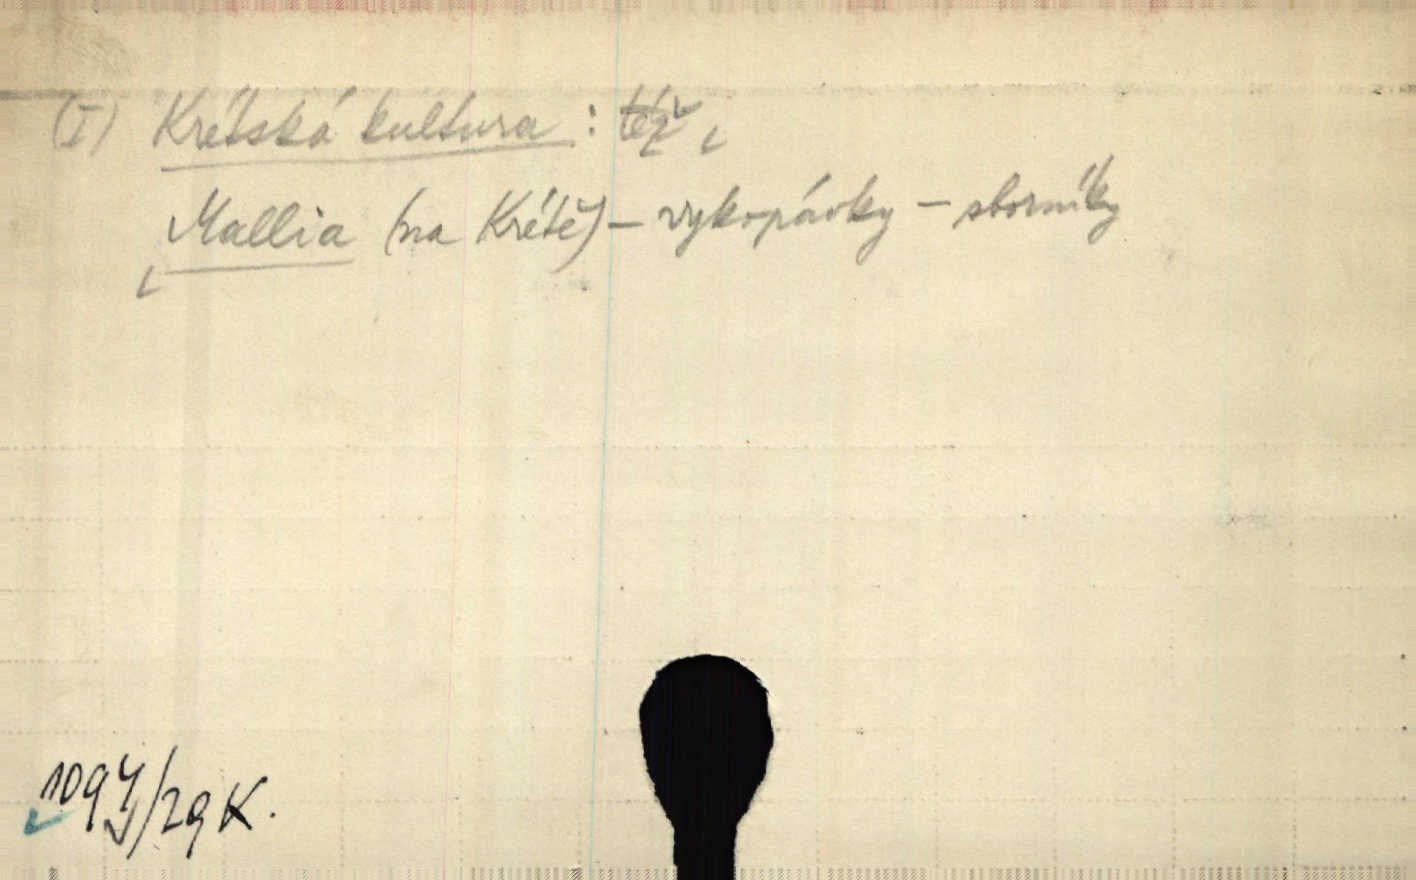 (I) Krétská kultura : též
Mallia (na Krétě) – vykopávky – sborníky
1094/29 K.